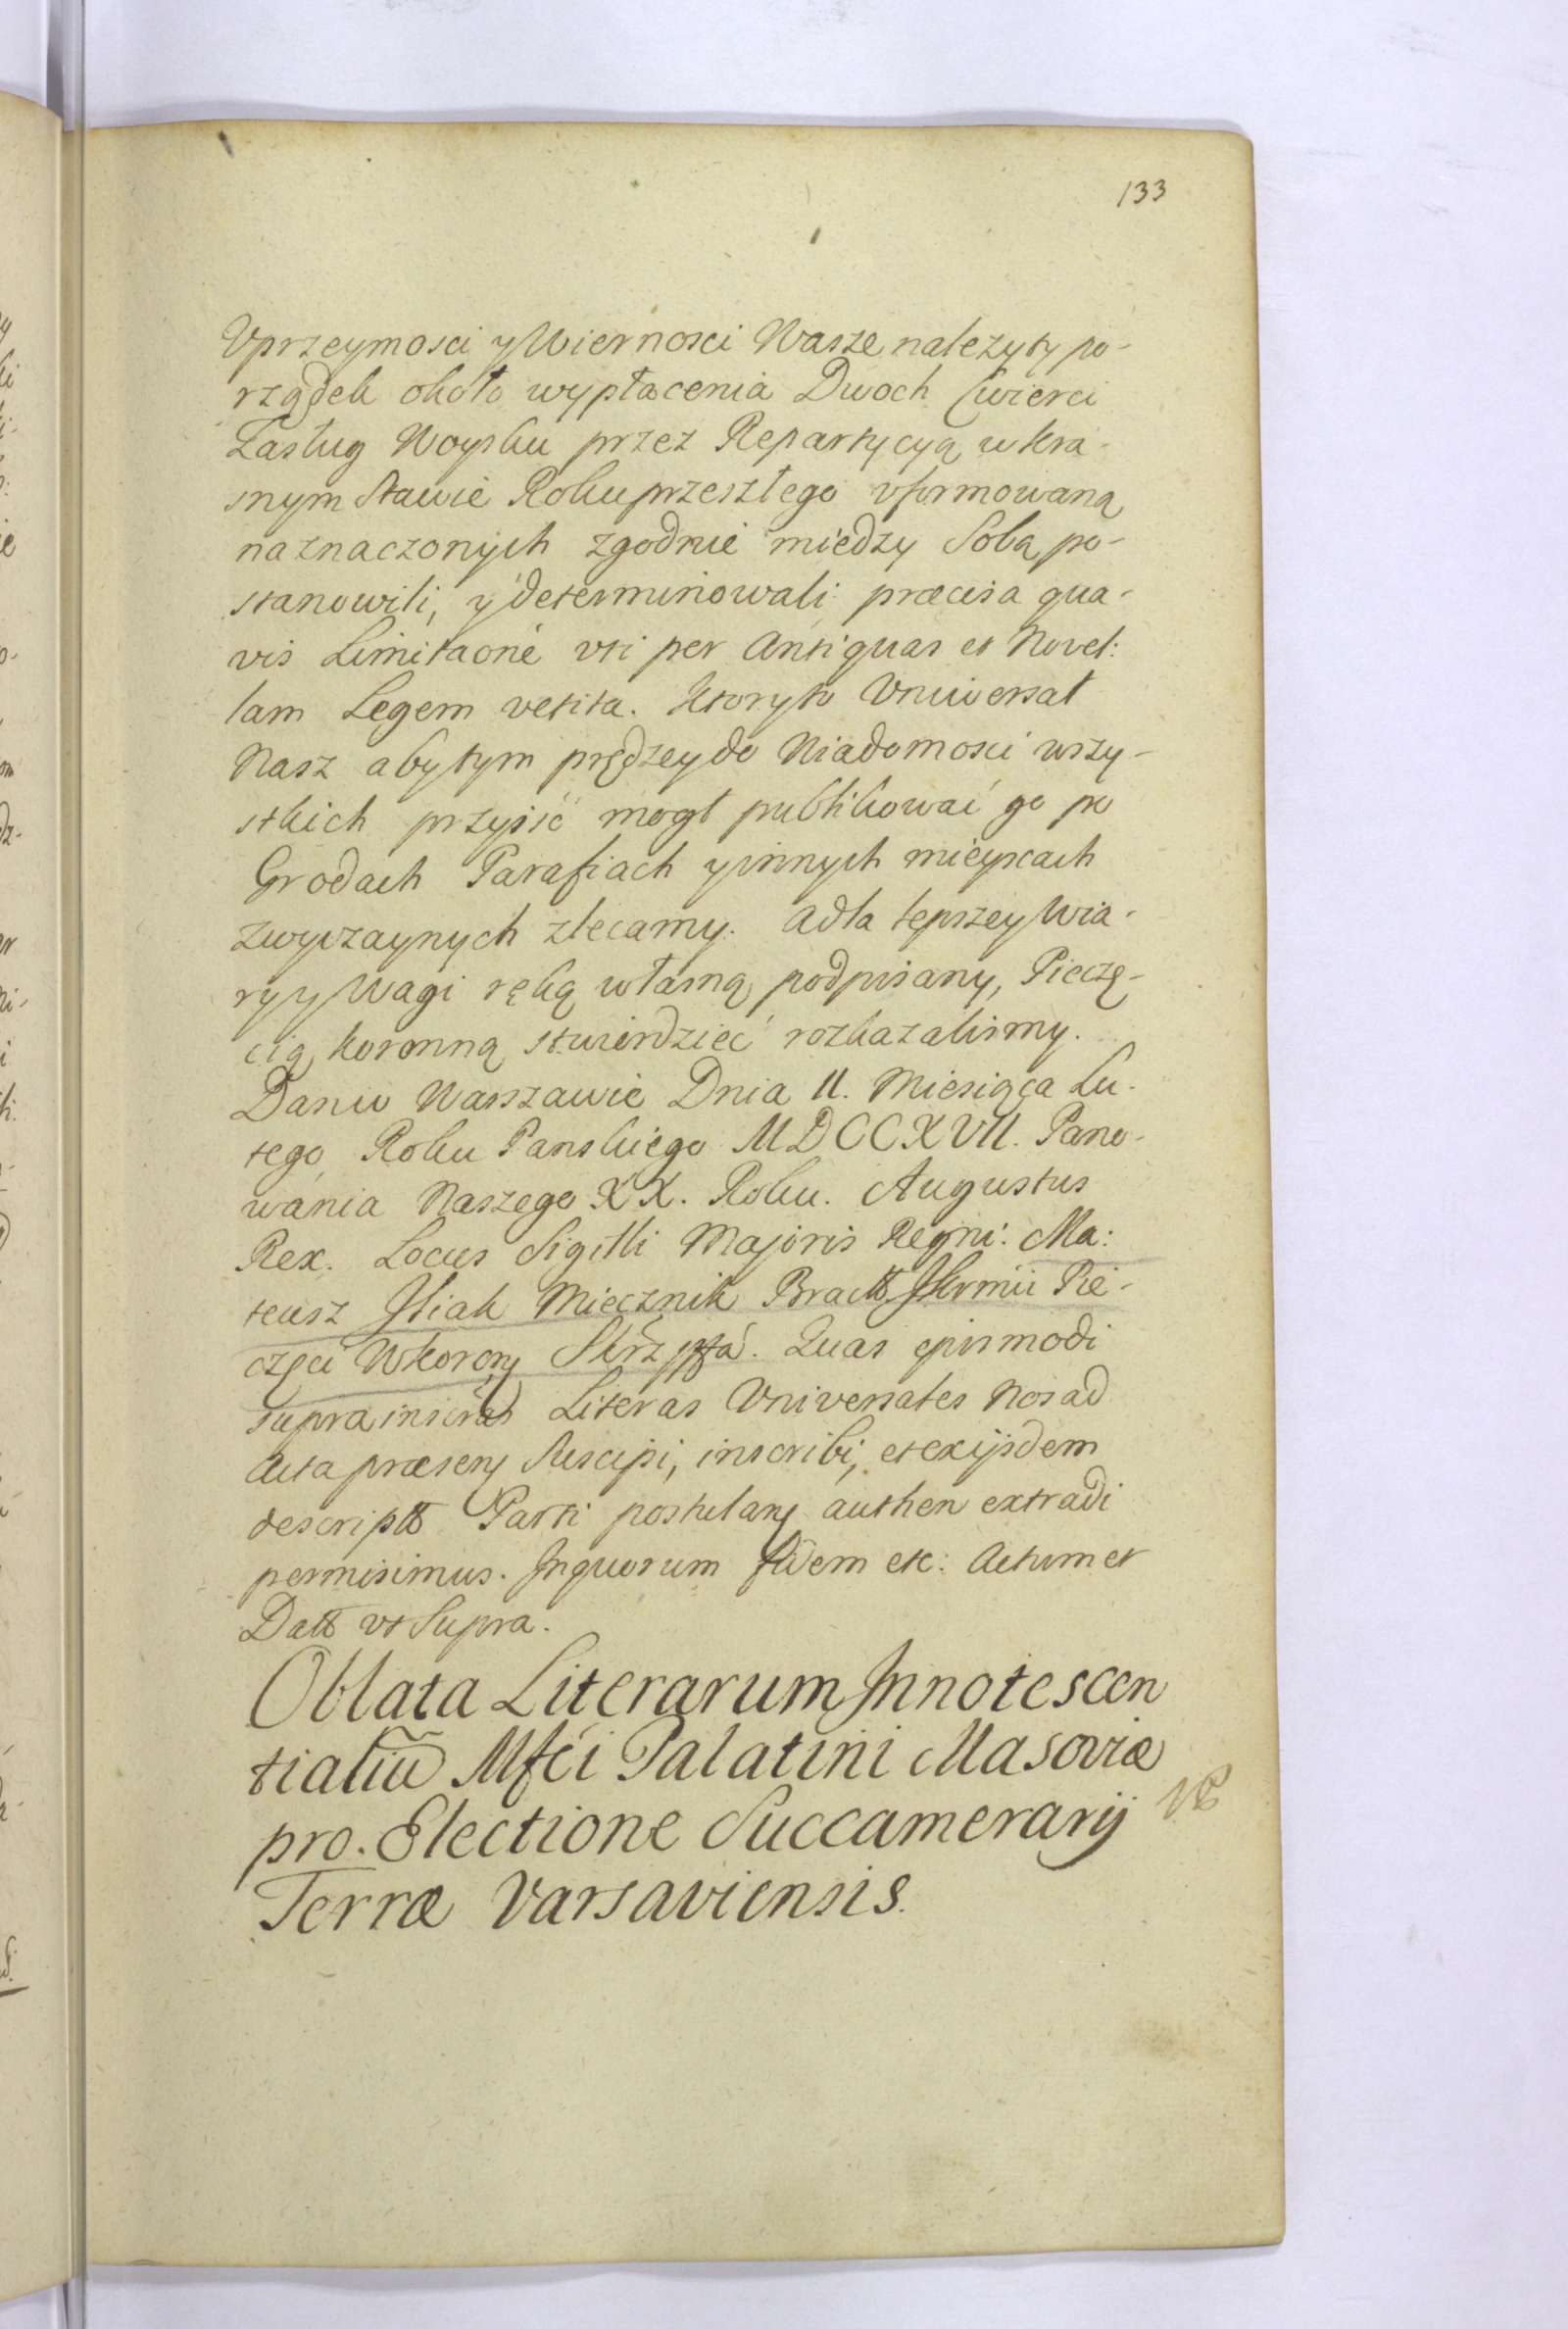 133
Vprzeymosci y Wiernosci Wasze nalezyty po-
rządek około wypłacenia Dwoch Cwierci
Zasług Woysku przez Repartycyą w Kra-
snym Stawie Roku przeszłego vformowaną
naznaczonych zgodnie miedzy Sobą po-
stanowili, y determinowali præcisa qua-
vis Limitaone vti per Antiquas et Novel:
lam Legem vetita. Ktoryto Vniwersał
Nasz aby tym prędzey do Wiadomosci wszy-
stkich przyiść mogł publikować go po
Grodach Parafiach y innych mieyscach
zwyczaynych zlecamy. A dla lepszey Wia-
ry y Wagi ręką własną podpisany, Pieczę-
cią koronną stwierdzieć rozkazalismy.
Dan w Warszawie Dnia 11. Miesiąca Lu-
tego Roku Panskiego MDCCXVII. Pano-
wania Naszego XX. Roku. Augustus
Rex. Locus Sigilli Majoris Regni: Ma:
teusz Iliak Miecznik Pie-
częci Wkorony. Quas ejusmodi
supra insertas Literas Vniversales Nos ad
Acta præsens Suscipi, inscribi, et ex ijsdem
descriptt Parti postulans authen extradi
permisimus. In quorum fidem etc: Actum et
Datt vt Supra.
Oblata Literarum Innotescen
tialiũ Mfći Palatini Masoviæ
pro. Electione Succamerarij
Terræ Varsaviensis.